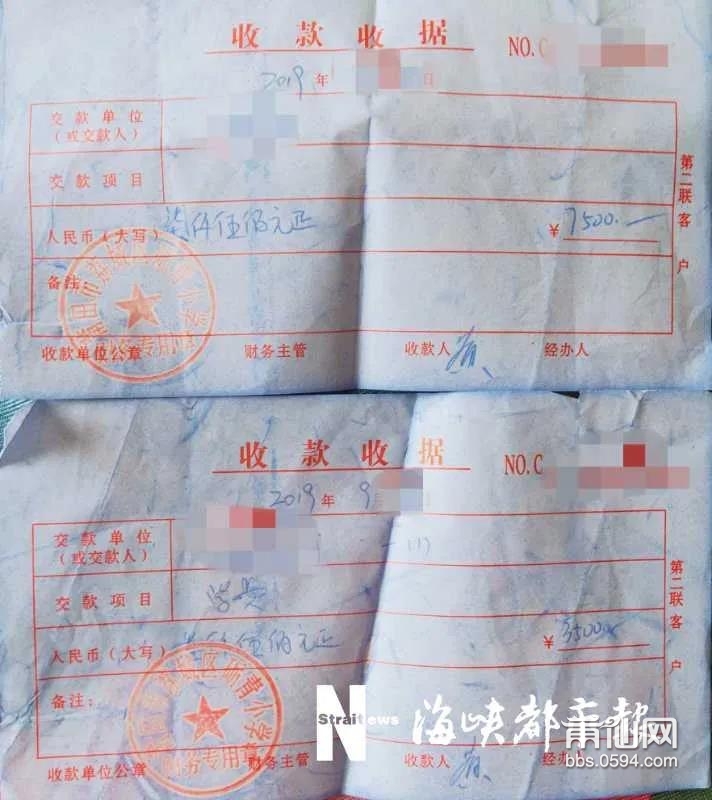 收款收据
NO.C
2019年 日
交款单位
(或交款人)
交款项目
人民币(大写) 柒仟伍佰元正 ¥ 7500.
备注:
第二联客户
收款单位公章 财务主管 收款人 黄 经办人
财务专用章
收款收据
NO.C
2019年9 日
交款单位
(或交款人)
交款项目 学费
人民币(大写) 仟伍佰元正 ¥ 3500.
备注:
第二联客户
收款单位公章 财务主管 收款人 黄 经办人
区砺青小学
财务专用章
N
Strait News 海峡都市报
莆仙网
bbs.0594.com